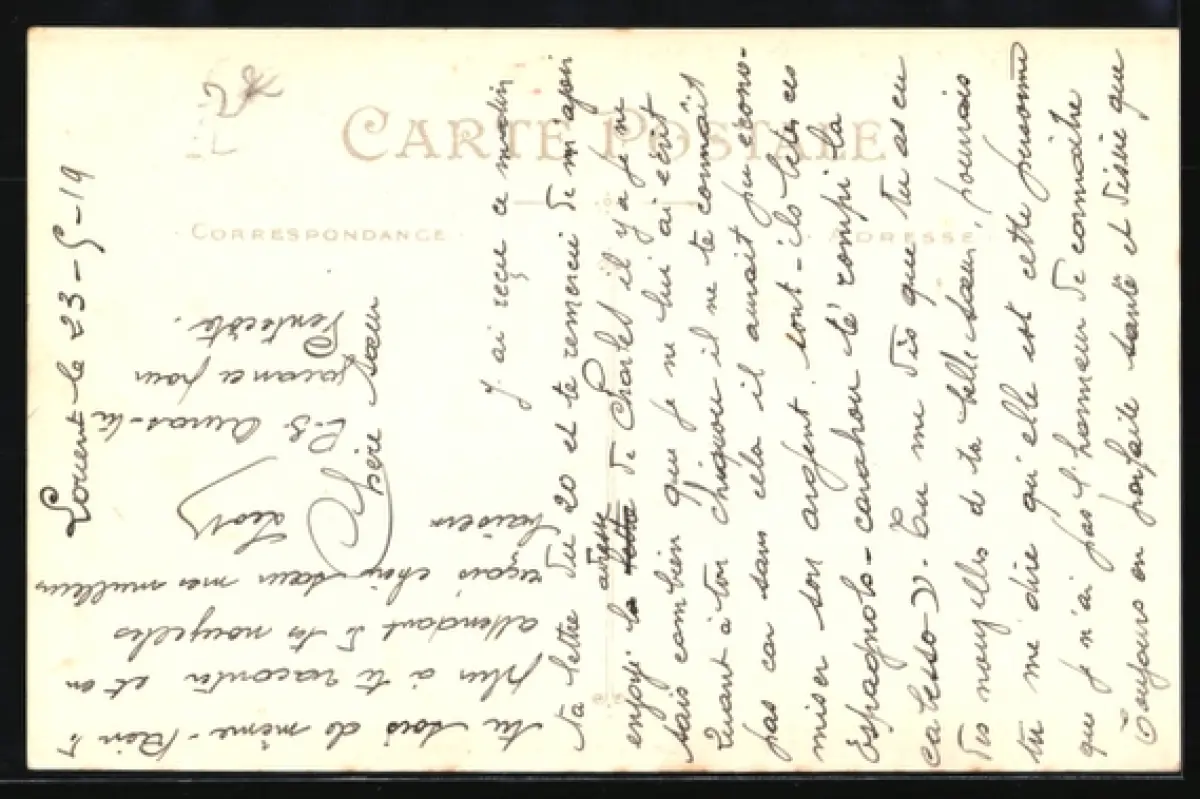 CARTE POSTALE
CORRESPONDANCE
ADRESSE
Lorient le 23-5-19
Chère sœur
J'ai reçue ce matin
ta lettre du 20 et te remerci de m'avoir
envoyé la lettre adresse de Charles il y a je ne
sais combien que je ne lui ai écrit
Quant à ton il ne te connaît
pas car sans cela il aurait pu écono-
miser son argent sont-ils bêtes ces
Espagnols
Tu me dis que tu as eu
des nouvelles de ta belle sœur, pourrais
tu me dire qu'elle est cette personne
que je n'ai pas l'honneur de connaître
Toujours en parfaite santé et désire que
tu sois de même - Rien de
plus à te raconter et en
attendant de tes nouvelles
reçois chère sœur mes meilleurs
baisers
Léon
P.S. Auras-tu
pour
Pentecôte.